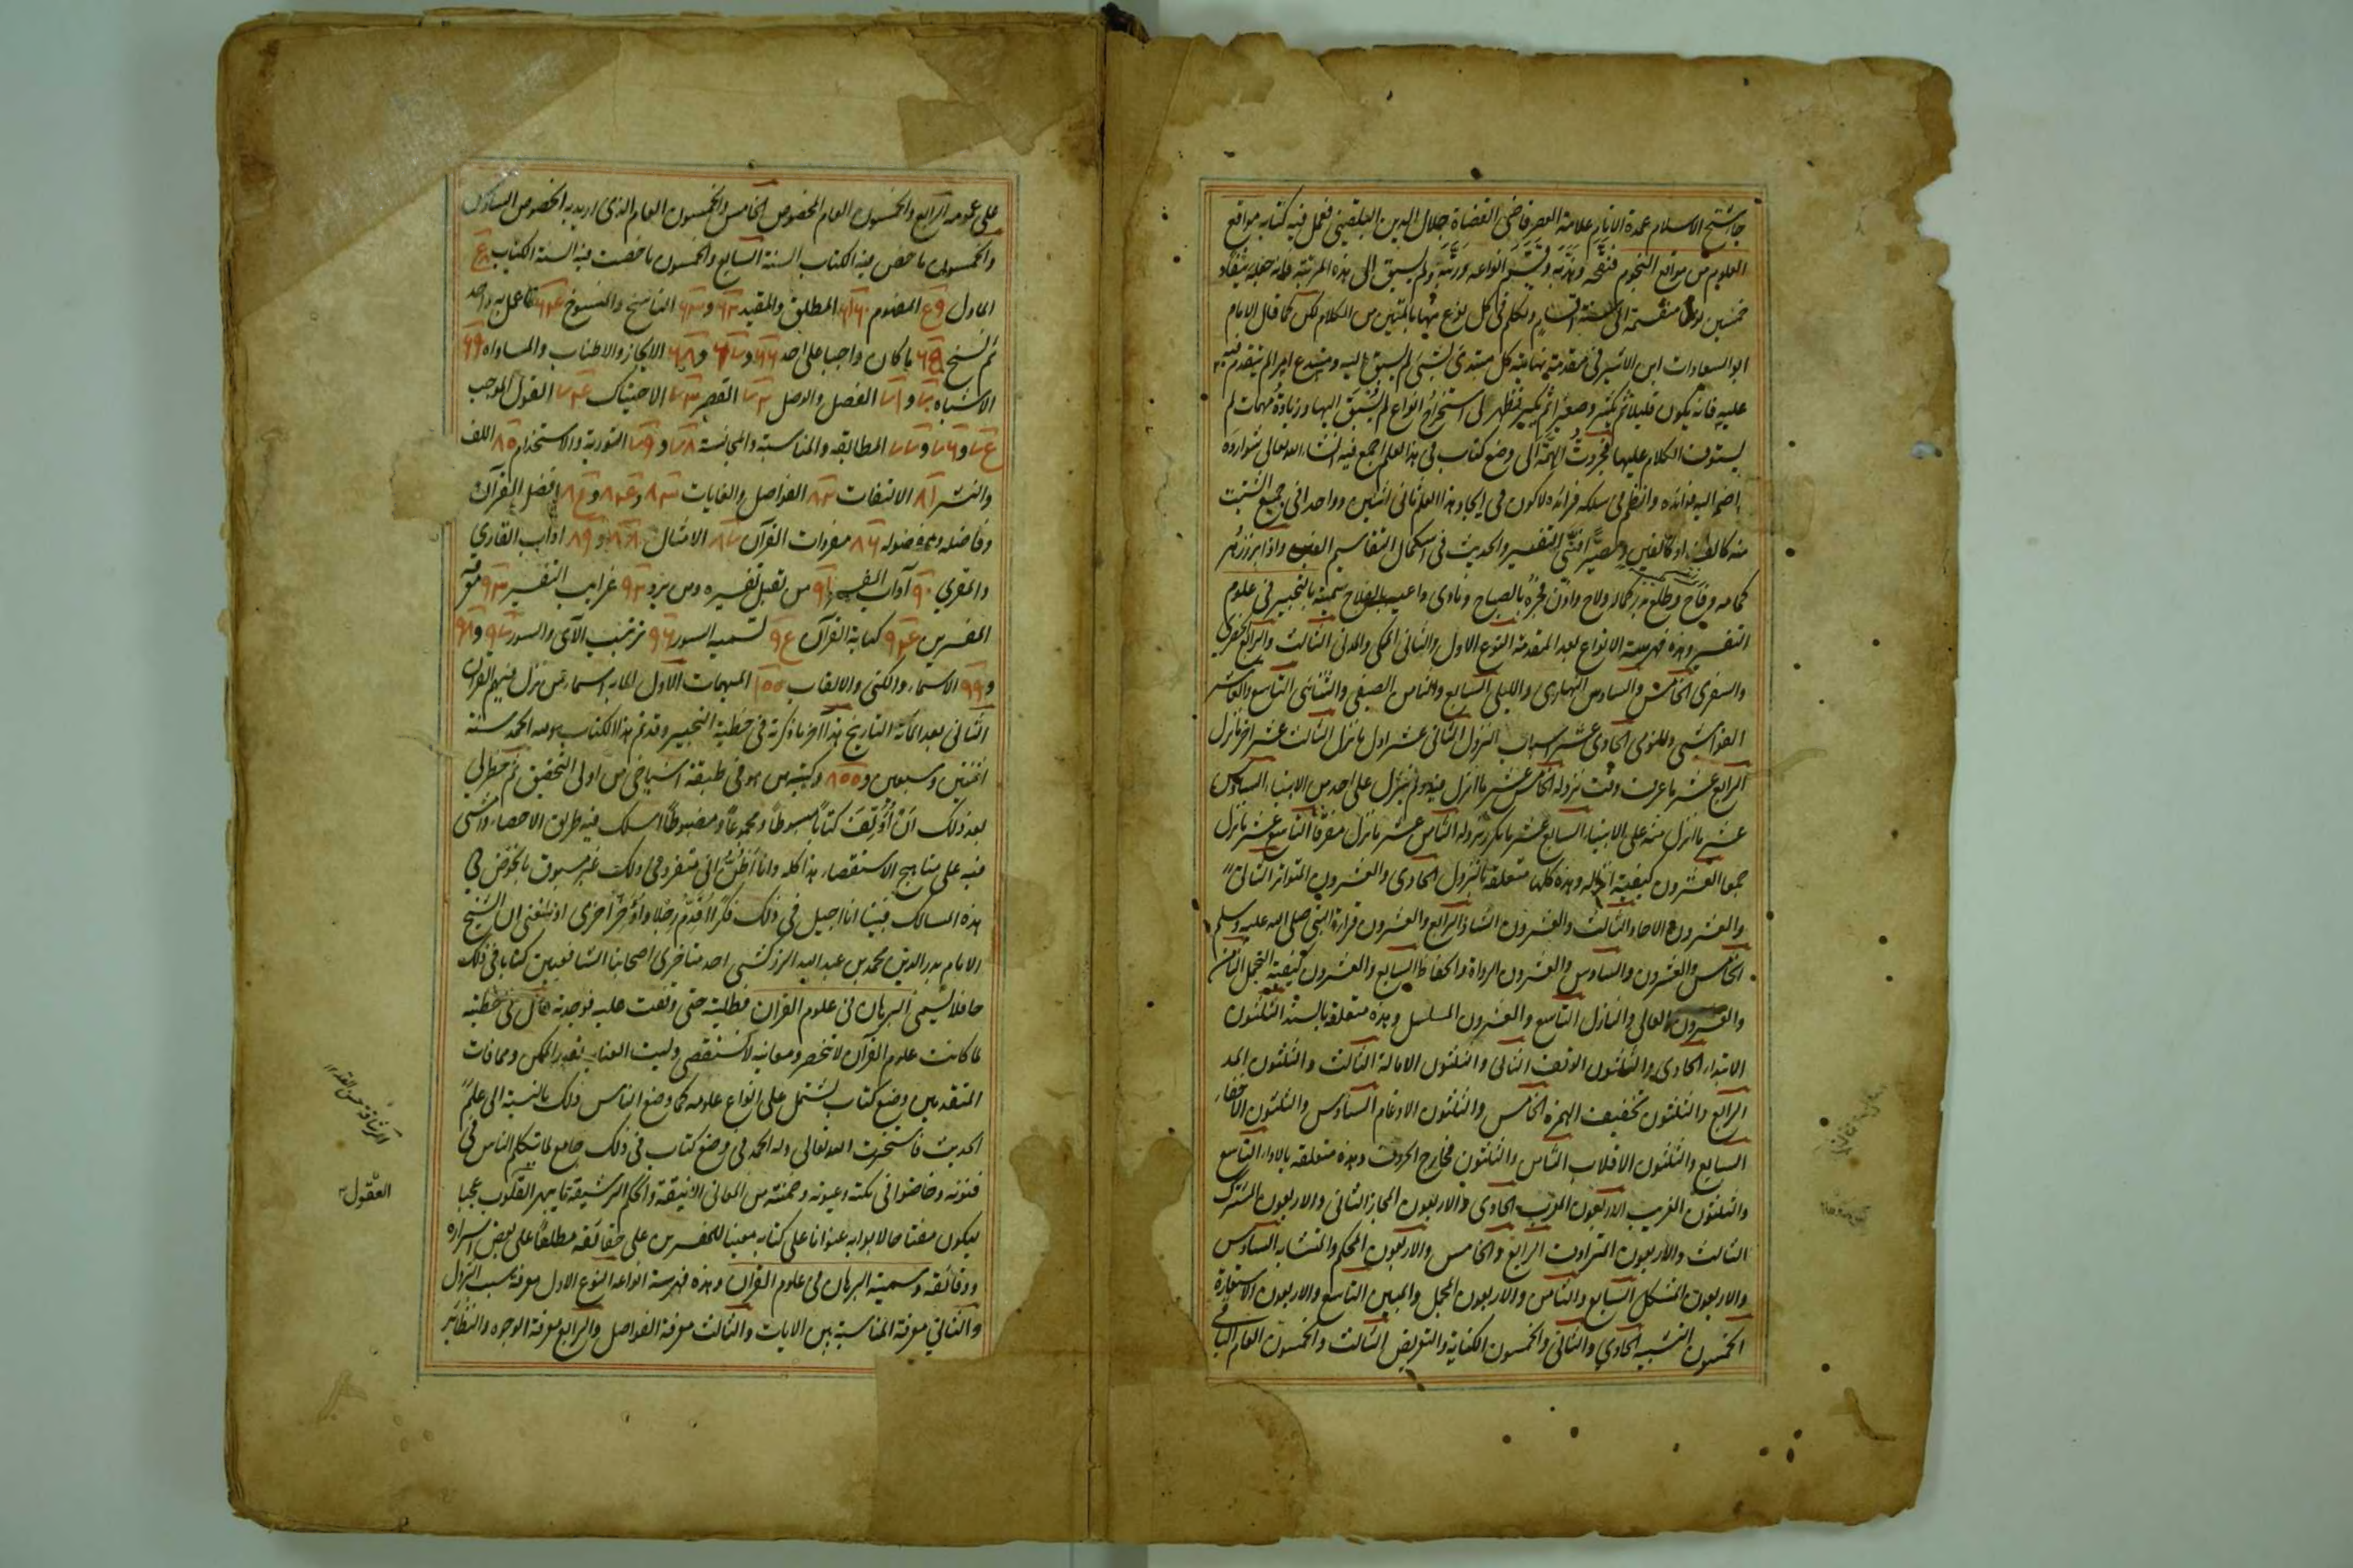 جا شيخ الاسلام عمدة الانام علامة العصر قاضى القضاة جلال الدين البلقينى فعمل فيه كتابه مواقع
العلوم من مواقع النجوم فنقحه وهذبه وقسم انواعه ورتبه ولم يسبق الى هذه المرتبة فانه جعله نيفا و
خمسين نوعا منقسمة الى ستة اقسام وتكلم فى كل نوع منها بالمتين من الكلام لكن كما قال الامام
ابو السعادات ابن الاثير فى مقدمة نهايته كل مبتدئ لشئ لم يسبق اليه ومبتدع امر لم يتقدم فيه
عليه فانه يكون قليلا ثم يكثر وصغيرا ثم يكبر فظهر لى استخراج انواع لم يسبق اليها وزيادة مهمات لم
يستوف الكلام عليها فجردت الهمة الى وضع كتاب فى هذا العلم اجمع فيه انشاء الله تعالى شوارده
واضم اليه فوائده وانظم فى سلكه فرائده لاكون فى ايجاد هذا العلم ثانى اثنين وواحدا فى جميع الشتيت
منه كالف او كالفين ومصيرا فنى التفسير والحديث فى استكمال التقاسيم الفين واذا برز زهر
كمامه وفاح وطلع بدر كماله ولاح واذن فجره بالصباح ونادى داعيه بالفلاح سميته بالتحبير فى علوم
التفسير وهذه فهرسة الانواع بعد المقدمة النوع الاول والثانى المكى والمدنى الثالث والرابع الحضرى
والسفرى الخامس والسادس النهارى والليلى السابع والثامن الصيفى والشتائى التاسع والعاشر
الفراشى والنومى الحادى عشر اسباب النزول الثانى عشر اول ما نزل الثالث عشر اخر ما نزل
الرابع عشر ما عرف وقت نزوله الخامس عشر ما انزل فيه ولم ينزل على احد من الانبياء السادس
عشر ما انزل منه على الانبياء السابع عشر ما تكرر نزوله الثامن عشر ما نزل مفرقا التاسع عشر ما نزل
جمعا العشرون كيفية انزاله وهذه كلها متعلقة بالنزول الحادى والعشرون المتواتر الثانى
والعشرون الاحاد الثالث والعشرون الشاذ الرابع والعشرون قراءة النبى صلى الله عليه وسلم
الخامس والعشرون والسادس والعشرون الرواة والحفاظ السابع والعشرون كيفية التحمل الثامن
والعشرون العالى والنازل التاسع والعشرون المسلسل وهذه متعلقة بالسند الثلثون
الابتداء الحادى والثلثون الوقف الثانى والثلثون الامالة الثالث والثلثون المد
الرابع والثلثون تخفيف الهمزة الخامس والثلثون الادغام السادس والثلثون الاخفاء
السابع والثلثون الاقلاب الثامن والثلثون مخارج الحروف وهذه متعلقة بالاداء التاسع
والثلثون الغريب الاربعون المعرب الحادى والاربعون المجاز الثانى والاربعون المشترك
الثالث والاربعون المترادف الرابع والخامس والاربعون المحكم والمتشابه السادس
والاربعون المشكل السابع والثامن والاربعون المجمل والمبين التاسع والاربعون الاستعارة
الخمسون التشبيه الحادى والثانى والخمسون الكناية والتعريض الثالث والخمسون العام الباقى
على عمومه الرابع والخمسون العام المخصوص الخامس والخمسون العام الذى اريد به الخصوص السادس
والخمسون ما خص فيه الكتاب السنة السابع والخمسون ما خصت فيه السنة الكتاب
الماول المفهوم المطلق والمقيد الناسخ والمنسوخ ما عمل به واحد
ثم نسخ ما كان واجبا على احد الايجاز والاطناب والمساواه
الاشباه الفصل والوصل القصر الاحتباك القول الموجب
المطابقه والمناسبة والمجانسة التورية والاستخدام اللف
والنشر الالتفات الفواصل والغايات افضل القرآن
وفاضله ومفضوله مفردات القرآن الامثال اداب القارى
والمقرى آداب المفسر من تقبل تفسيره ومن يرد غرايب التفسير معرفة
المفسرين كتابة القرآن تسمية السور ترتيب الآى والسور
الاسماء والكنى والالقاب المبهمات الاول الماية اسماء من نزل فيهم القران
الثانى بعد المائة التاريخ هذا اخر ما ذكرته فى خطبة التحبير وقد تم هذا الكتاب ولله الحمد سنة
اثنتين وسبعين و وكتبه من هو فى طبقة اشياخى من اولى التحقيق ثم خطر لى
بعد ذلك ان اؤلف كتابا مبسوطا ومجموعا مضبوطا اسلك فيه طريق الاحصاء وامشى
فيه على مناهج الاستقصاء هذا كله وانا اظن انى متفرد فى ذلك غير مسبوق بالخوض فى
هذه المسالك فبينا انا اجيل فى ذلك فكرا اقدم رجلا واؤخر اخرى اذ بلغنى ان الشيخ
الامام بدر الدين محمد بن عبد الله الزركشى احد متاخرى اصحابنا الشافعيين كتابا فى ذلك
حافلا يسمى البرهان فى علوم القران فطلبته حتى وقفت عليه فوجدته قال فى خطبته
لما كانت علوم القرآن لا تنحصر ومعانيه لا تستقصى وجبت العناية بقدر الممكن ومما فات
المتقدمين وضع كتاب يشتمل على انواع علومه كما وضع الناس ذلك بالنسبة الى علم
الحديث فاستخرت الله تعالى وله الحمد فى وضع كتاب فى ذلك جامع لما تكلم الناس فى
فنونه وخاضوا فى نكته وعيونه وضمنته من المعانى الانيقة والحكم الرشيقة ما يبهر القلوب عجبا
ليكون مفتاحا لابوابه عنوانا على كتابه معينا للمفسرين على حقائقه مطلعا على بعض اسراره
ودقائقه وسميته البرهان فى علوم القران وهذه فهرسة انواعه النوع الاول معرفة سبب النزول
والثانى معرفة المناسبة بين الايات والثالث معرفة الفواصل والرابع معرفة الوجوه والنظائر
العقول